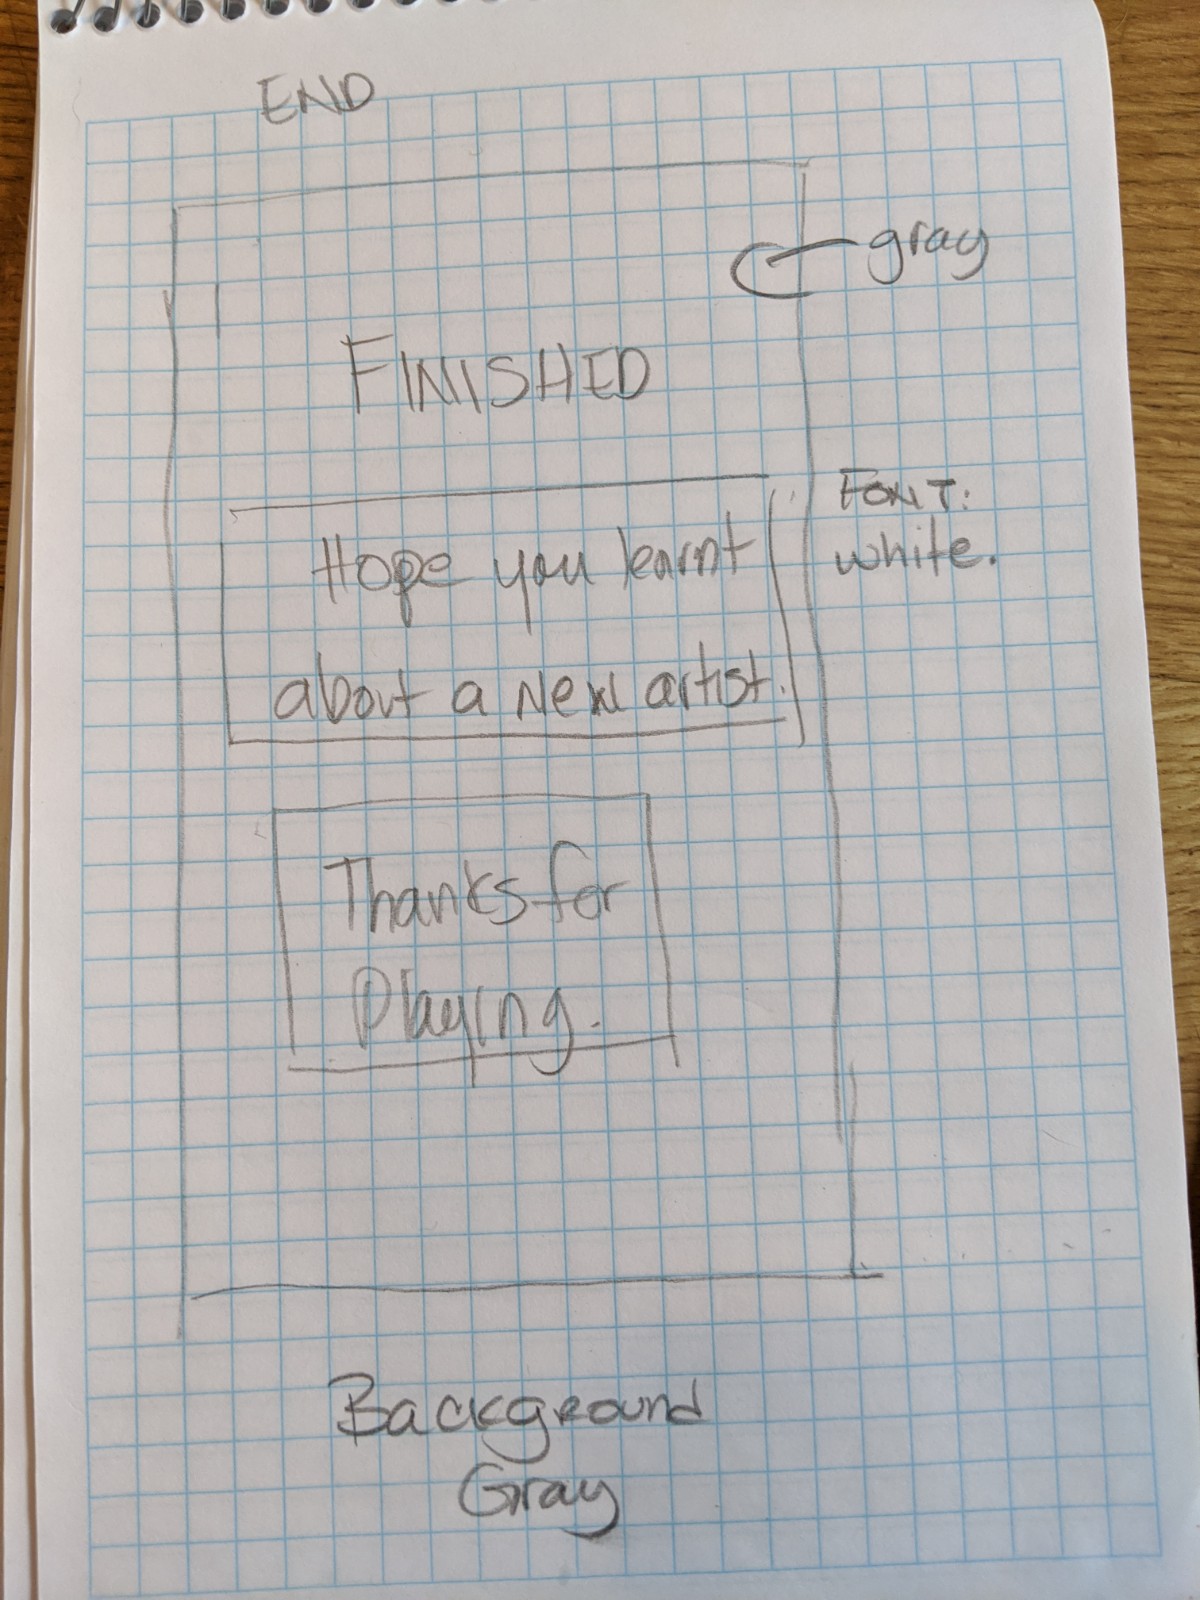 END
gray
FINISHED
FONT:
white.
Hope you learnt
about a New artist.
Thanks for
Playing.
Background
Gray